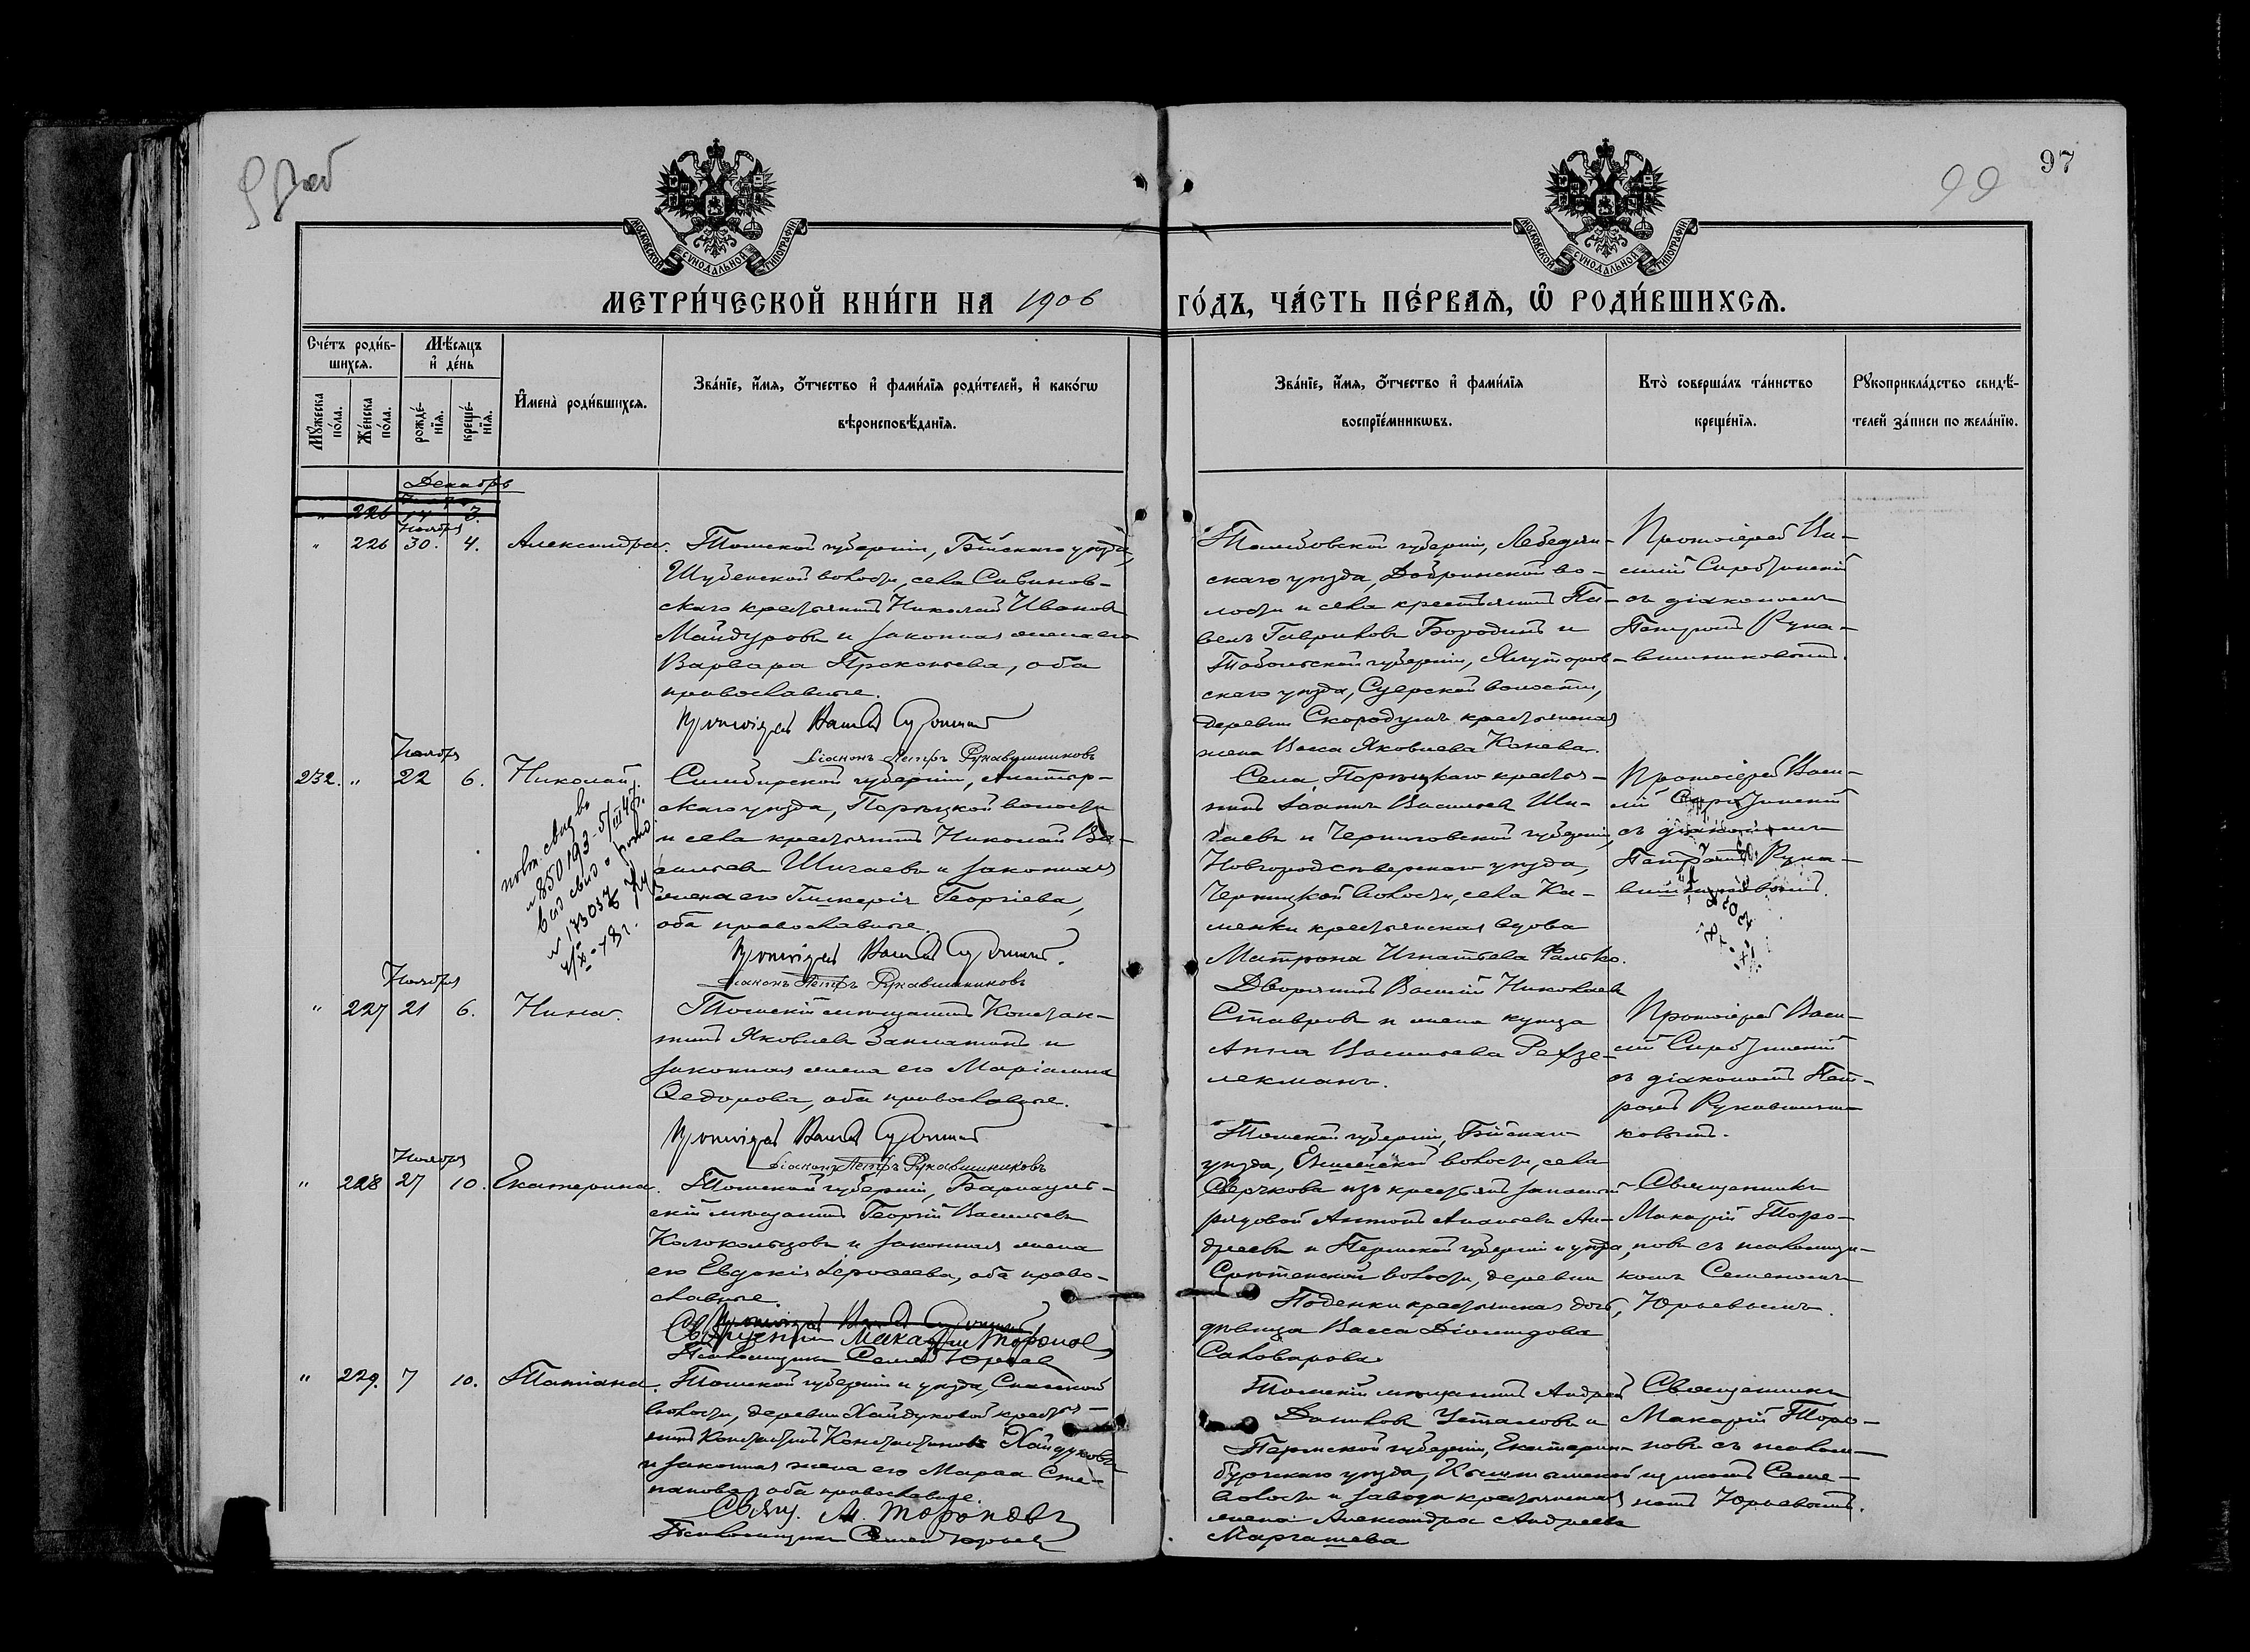 97
99
МОСКОВСКОЙ СѴНОДАЛЬНОЙ ТИПОГРАФІИ
МОСКОВСКОЙ СѴНОДАЛЬНОЙ ТИПОГРАФІИ
МЕТРИ́ЧЕСКОЙ КНИ́ГИ НА 1906 ГО́ДЪ, ЧА́СТЬ ПЕ́РВАѦ, Ѡ҆ РОДИ́ВШИХСѦ.
Сче́тъ роди́в-
шихсѧ.
Мꙋ́жеска по́ла.
Же́нска по́ла.
Мѣ́сѧцъ и҆ де́нь
рожде́-
нїѧ.
креще́-
нїѧ.
И҆мена̀ роди́вшихсѧ.
Зва́нїе, и҆́мѧ, ѻ҆́тчество и҆ фами́лїѧ роди́телей, и҆ како́гѡ
вѣроисповѣ́данїѧ.
Зва́нїе, и҆́мѧ, ѻ҆́тчество и҆ фами́лїѧ
воспрїе́мникѡвъ.
Кто̀ соверша́лъ та́инство
креще́нїѧ.
Рꙋкоприкла́дство свидѣ́-
телей за́писи по жела́нїю.
Декабрь
" 226 14 3.
Ноября
" 226 30. 4. Александра.
Томской губерніи, Бійскаго уѣзда,
Шубенской волости, села Савинов-
скаго крестьянинъ Николай Ивановъ
Майдуровъ и законная жена его
Варвара Прокопьева, оба
православные.
Протоіерей Василій Сиротинскій
Діаконъ Петръ Рукавишниковъ
Тамбовской губерніи, Лебедян-
скаго уѣзда, Добринской во-
лости и села крестьянинъ Па-
велъ Гавриловъ Бородинъ и
Тобольской губерніи, Ялуторов-
скаго уѣзда, Суерской волости,
деревни Скородумъ крестьянская
жена Васса Яковлева Канева.
Протоіерей Ва-
силій Сиротинскій
съ діакономъ
Петромъ Рука-
вишниковымъ.
Ноября
232. " 22 6. Николай
Симбирской губерніи, Алатыр-
скаго уѣзда, Порѣцкой волости
и села крестьянинъ Николай Ва-
сильевъ Шигаевъ и законная
жена его Гликерія Георгіева,
оба православные.
Протоіерей Василій Сиротинскій
Діаконъ Петръ Рукавишниковъ
Села Порѣцкаго крестья-
нинъ Іоаннъ Васильевъ Ши-
гаевъ и Черниговской губерніи,
Новгородсѣверскаго уѣзда,
волости, села Ка-
менки крестьянская вдова
Матрона Игнатьева Фалько.
Протоіерей Васи-
лій Сиротинскій
съ діакономъ
Петромъ Рука-
вишниковымъ.
Ноября
" 227 21 6. Нина.
Томскій мѣщанинъ Констан-
тинъ Яковлевъ Заплатинъ и
законная жена его Маріанна
Ѳедорова, оба православные.
Протоіерей Василій Сиротинскій
Діаконъ Петръ Рукавишниковъ
Дворянинъ Василій Николаевъ
Ставровъ и жена купца
Анна Васильева
Протоіерей Васи-
лій Сиротинскій
съ діакономъ Пет-
ромъ Рукавишни-
ковымъ.
Ноября
" 228 27 10. Екатерина.
Томской губерніи, Барнауль-
скій мѣщанинъ Георгій Васильевъ
Колокольцовъ и законная жена
его Евдокія Іероѳеева, оба право-
славные.
Протоіерей Василій Сиротинскій
Священникъ Макарій Тороповъ
Псаломщикъ Семенъ Юрьевъ
Томской губерніи, Бійскаго
уѣзда, Енисейской волости, села
Сверчкова изъ крестьянъ запасный
рядовой Антонъ Ананьевъ Ан-
дреевъ и Пермской губерніи и уѣзда,
Срѣтенской волости, деревни
Поденки крестьянская дочь,
дѣвица Васса Діомидова
Саковарова.
Священникъ
Макарій Торо-
повъ съ псаломщи-
комъ Семеномъ
Юрьевымъ.
" 229. 7 10. Татіана.
Томской губерніи и уѣзда, Спасской
волости, деревни Хайдуковой кресть-
янинъ Константинъ Константиновъ Хайдуковъ
и законная жена его Марѳа Сте-
панова, оба православные.
Свящ. М. Тороповъ
Псаломщикъ Семенъ Юрьевъ
Томскій мѣщанинъ Андрей
Даниловъ Усталовъ и
Пермской губерніи, Екатерин-
бургскаго уѣзда, Кыштымской
волости и завода крестьянская
жена Александра Андреева
Маргашева
Священникъ
Макарій Торо-
повъ съ псалом-
щикомъ Семе-
номъ Юрьевымъ.